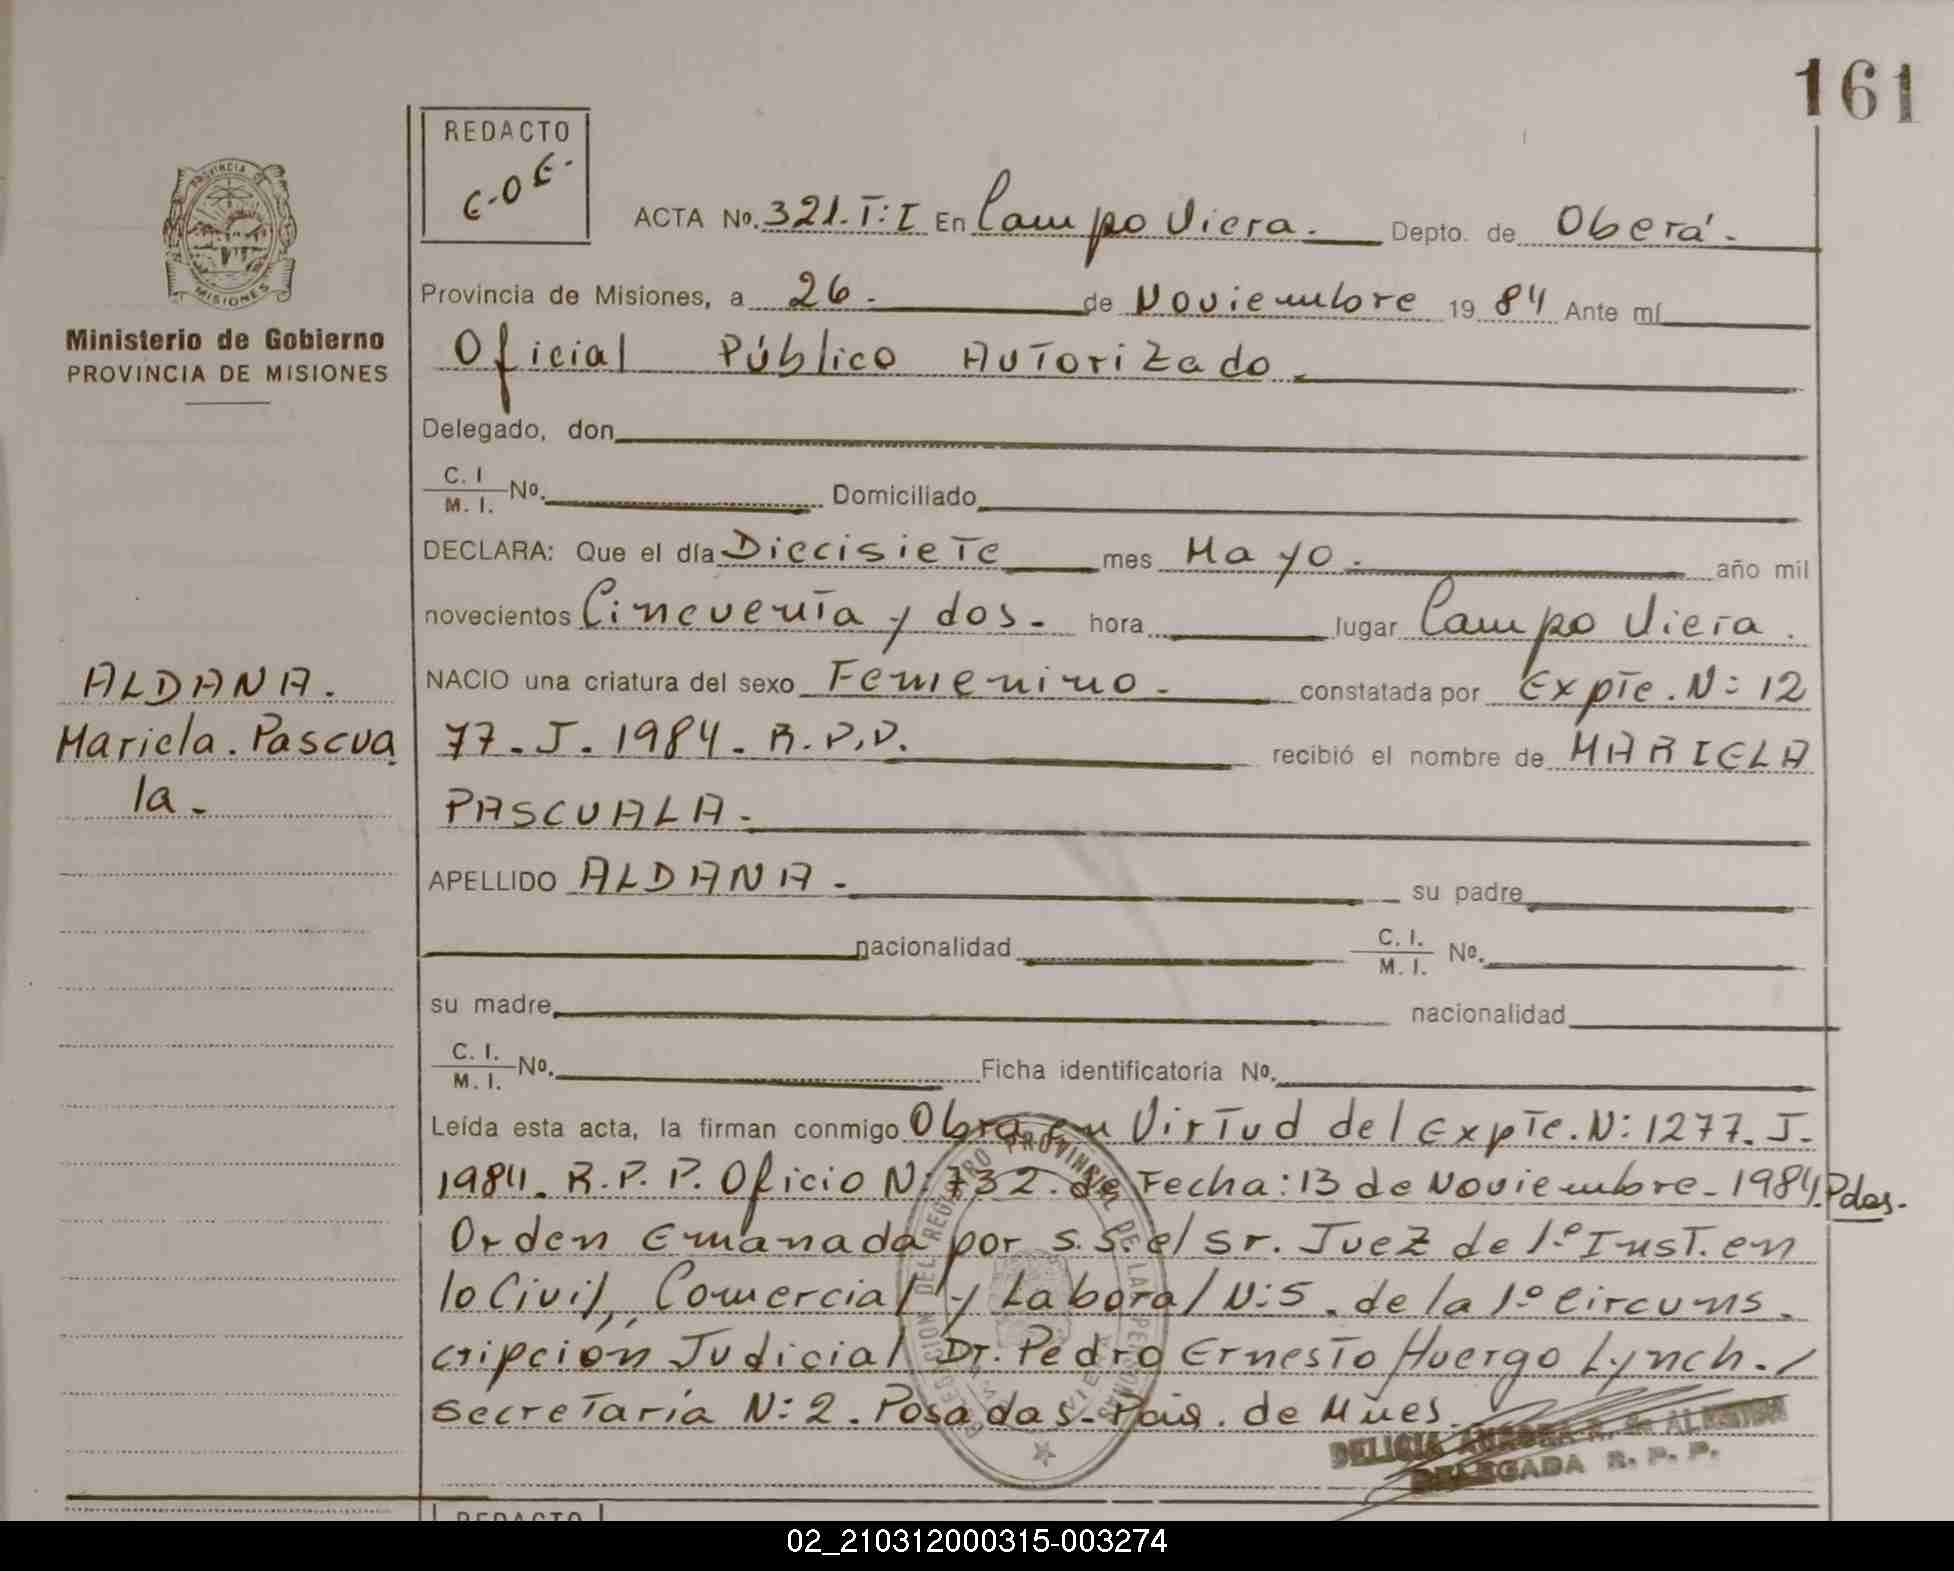 161
REDACTO
C.O.E.
PROVINCIA DE
MISIONES
Ministerio de Gobierno
PROVINCIA DE MISIONES
ACTA No. 321.T:I En Campo Viera. Depto. de Oberá.
Provincia de Misiones, a 26. de Noviembre 1984 Ante mí
Oficial Público Autorizado.
Delegado, don
C. I.
M. I. No. Domiciliado
DECLARA: Que el día Diecisiete mes Mayo. año mil
novecientos Cincuenta y dos. hora lugar Campo Viera.
ALDANA.
Mariela. Pascua
la.
NACIO una criatura del sexo Femenino. constatada por Expte. N: 12
77. J. 1984. R.P.P. recibió el nombre de MARIELA
PASCUALA.
APELLIDO ALDANA. su padre
nacionalidad C. I. No.
M. I.
su madre nacionalidad
C. I. No. Ficha identificatoria No.
M. I.
Leída esta acta, la firman conmigo Obra en Virtud del Expte. N: 1277. J.
1984. R.P.P. Oficio N: 732. de Fecha: 13 de Noviembre. 1984. Pdas.
Orden Emanada por S.S. el Sr. Juez de 1.º Inst. en
lo Civil, Comercial y Laboral N:5. de la 1º Circuns.
cripción Judicial Dr. Pedro Ernesto Huergo Lynch. /
Secretaría N: 2. Posadas. de Mnes.
DELEGADA R. P. P.
REDACTO
02_210312000315-003274